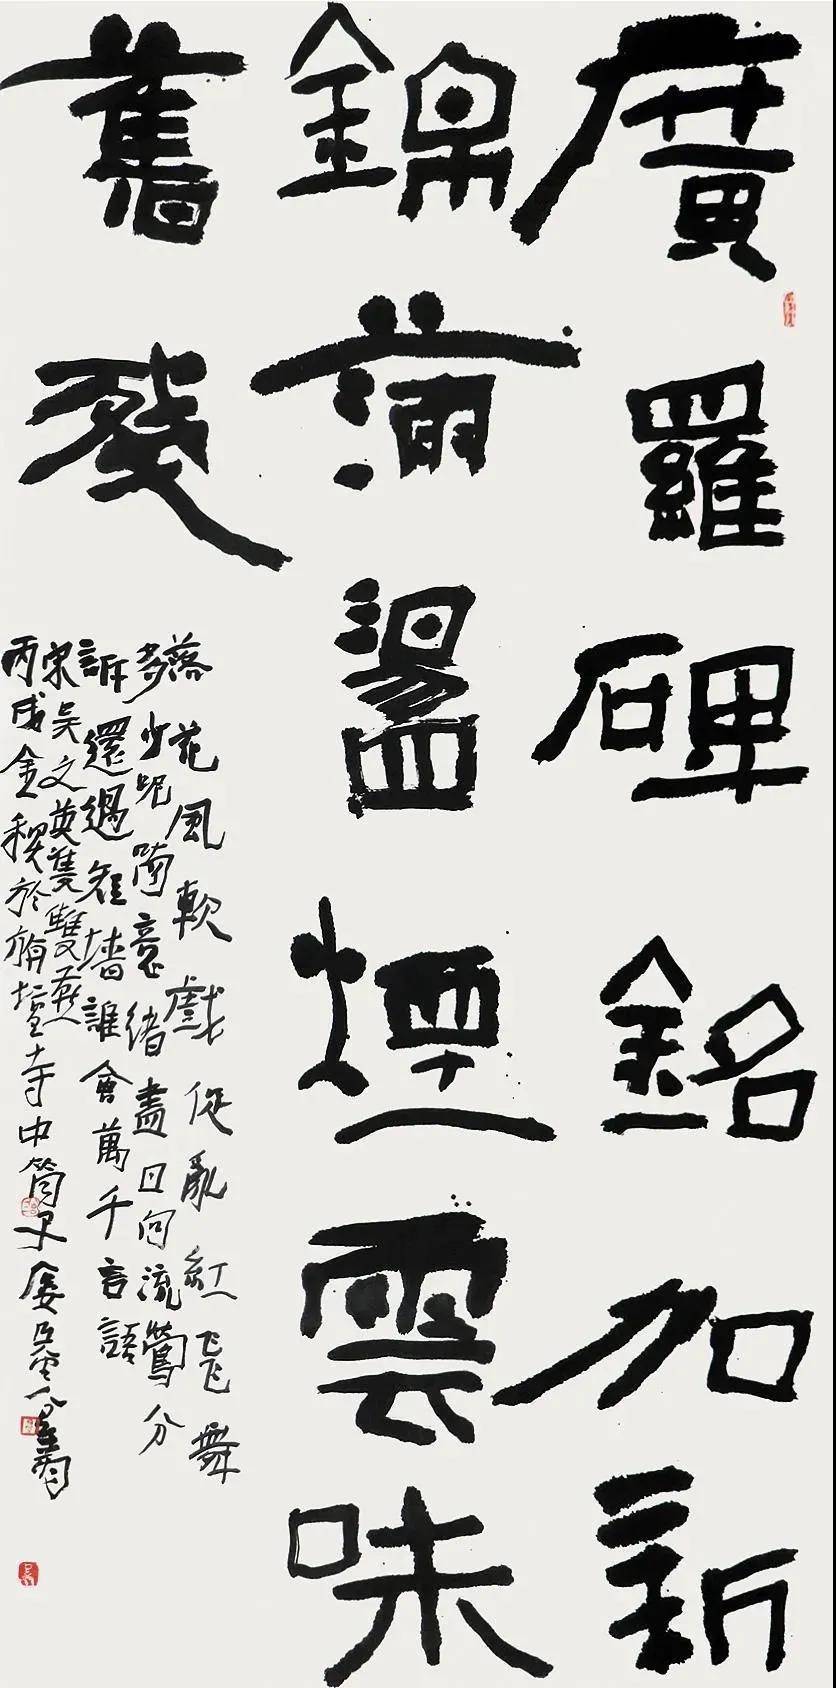 廣羅碑銘加新
錦蒲盪煙雲味
舊殘
落花風軟戲促亂紅飛舞
多少呢喃意緒盡日向流鶯分
訴還過短墻誰會萬千言語
宋吴文英雙雙燕
丙戌金秋於
寺中